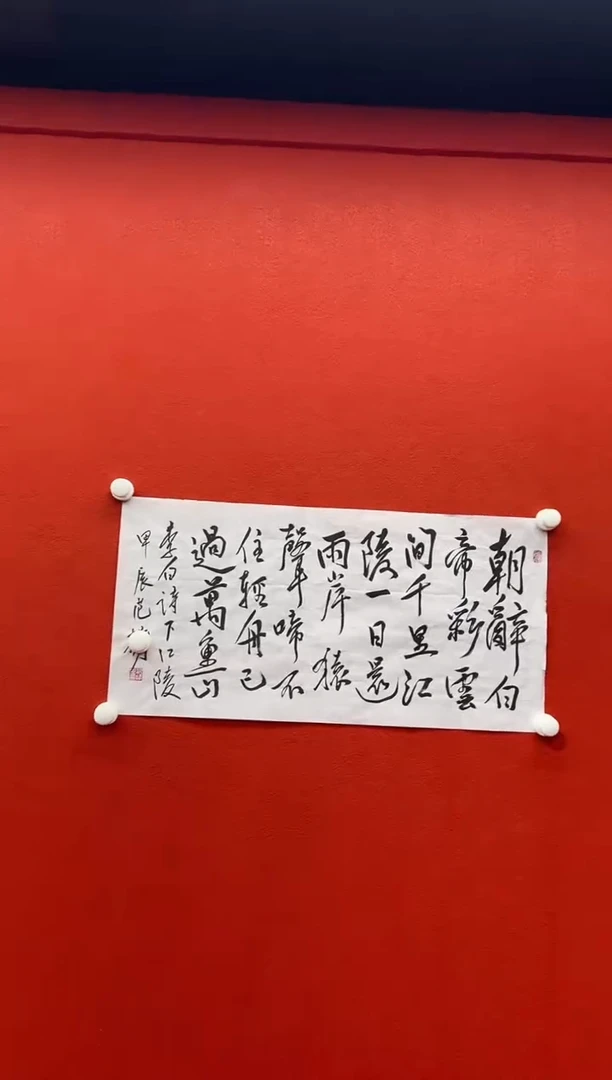 朝辭白
帝彩雲
間千里江
陵一日還
兩岸猿
聲啼不
住輕舟已
過萬重山
李白詩下江陵
甲辰范